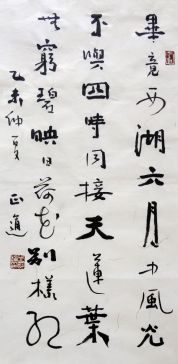 畢竟西湖六月中風光
不與四時同接天蓮葉
無窮碧映日荷花別樣紅
乙未仲夏 正道